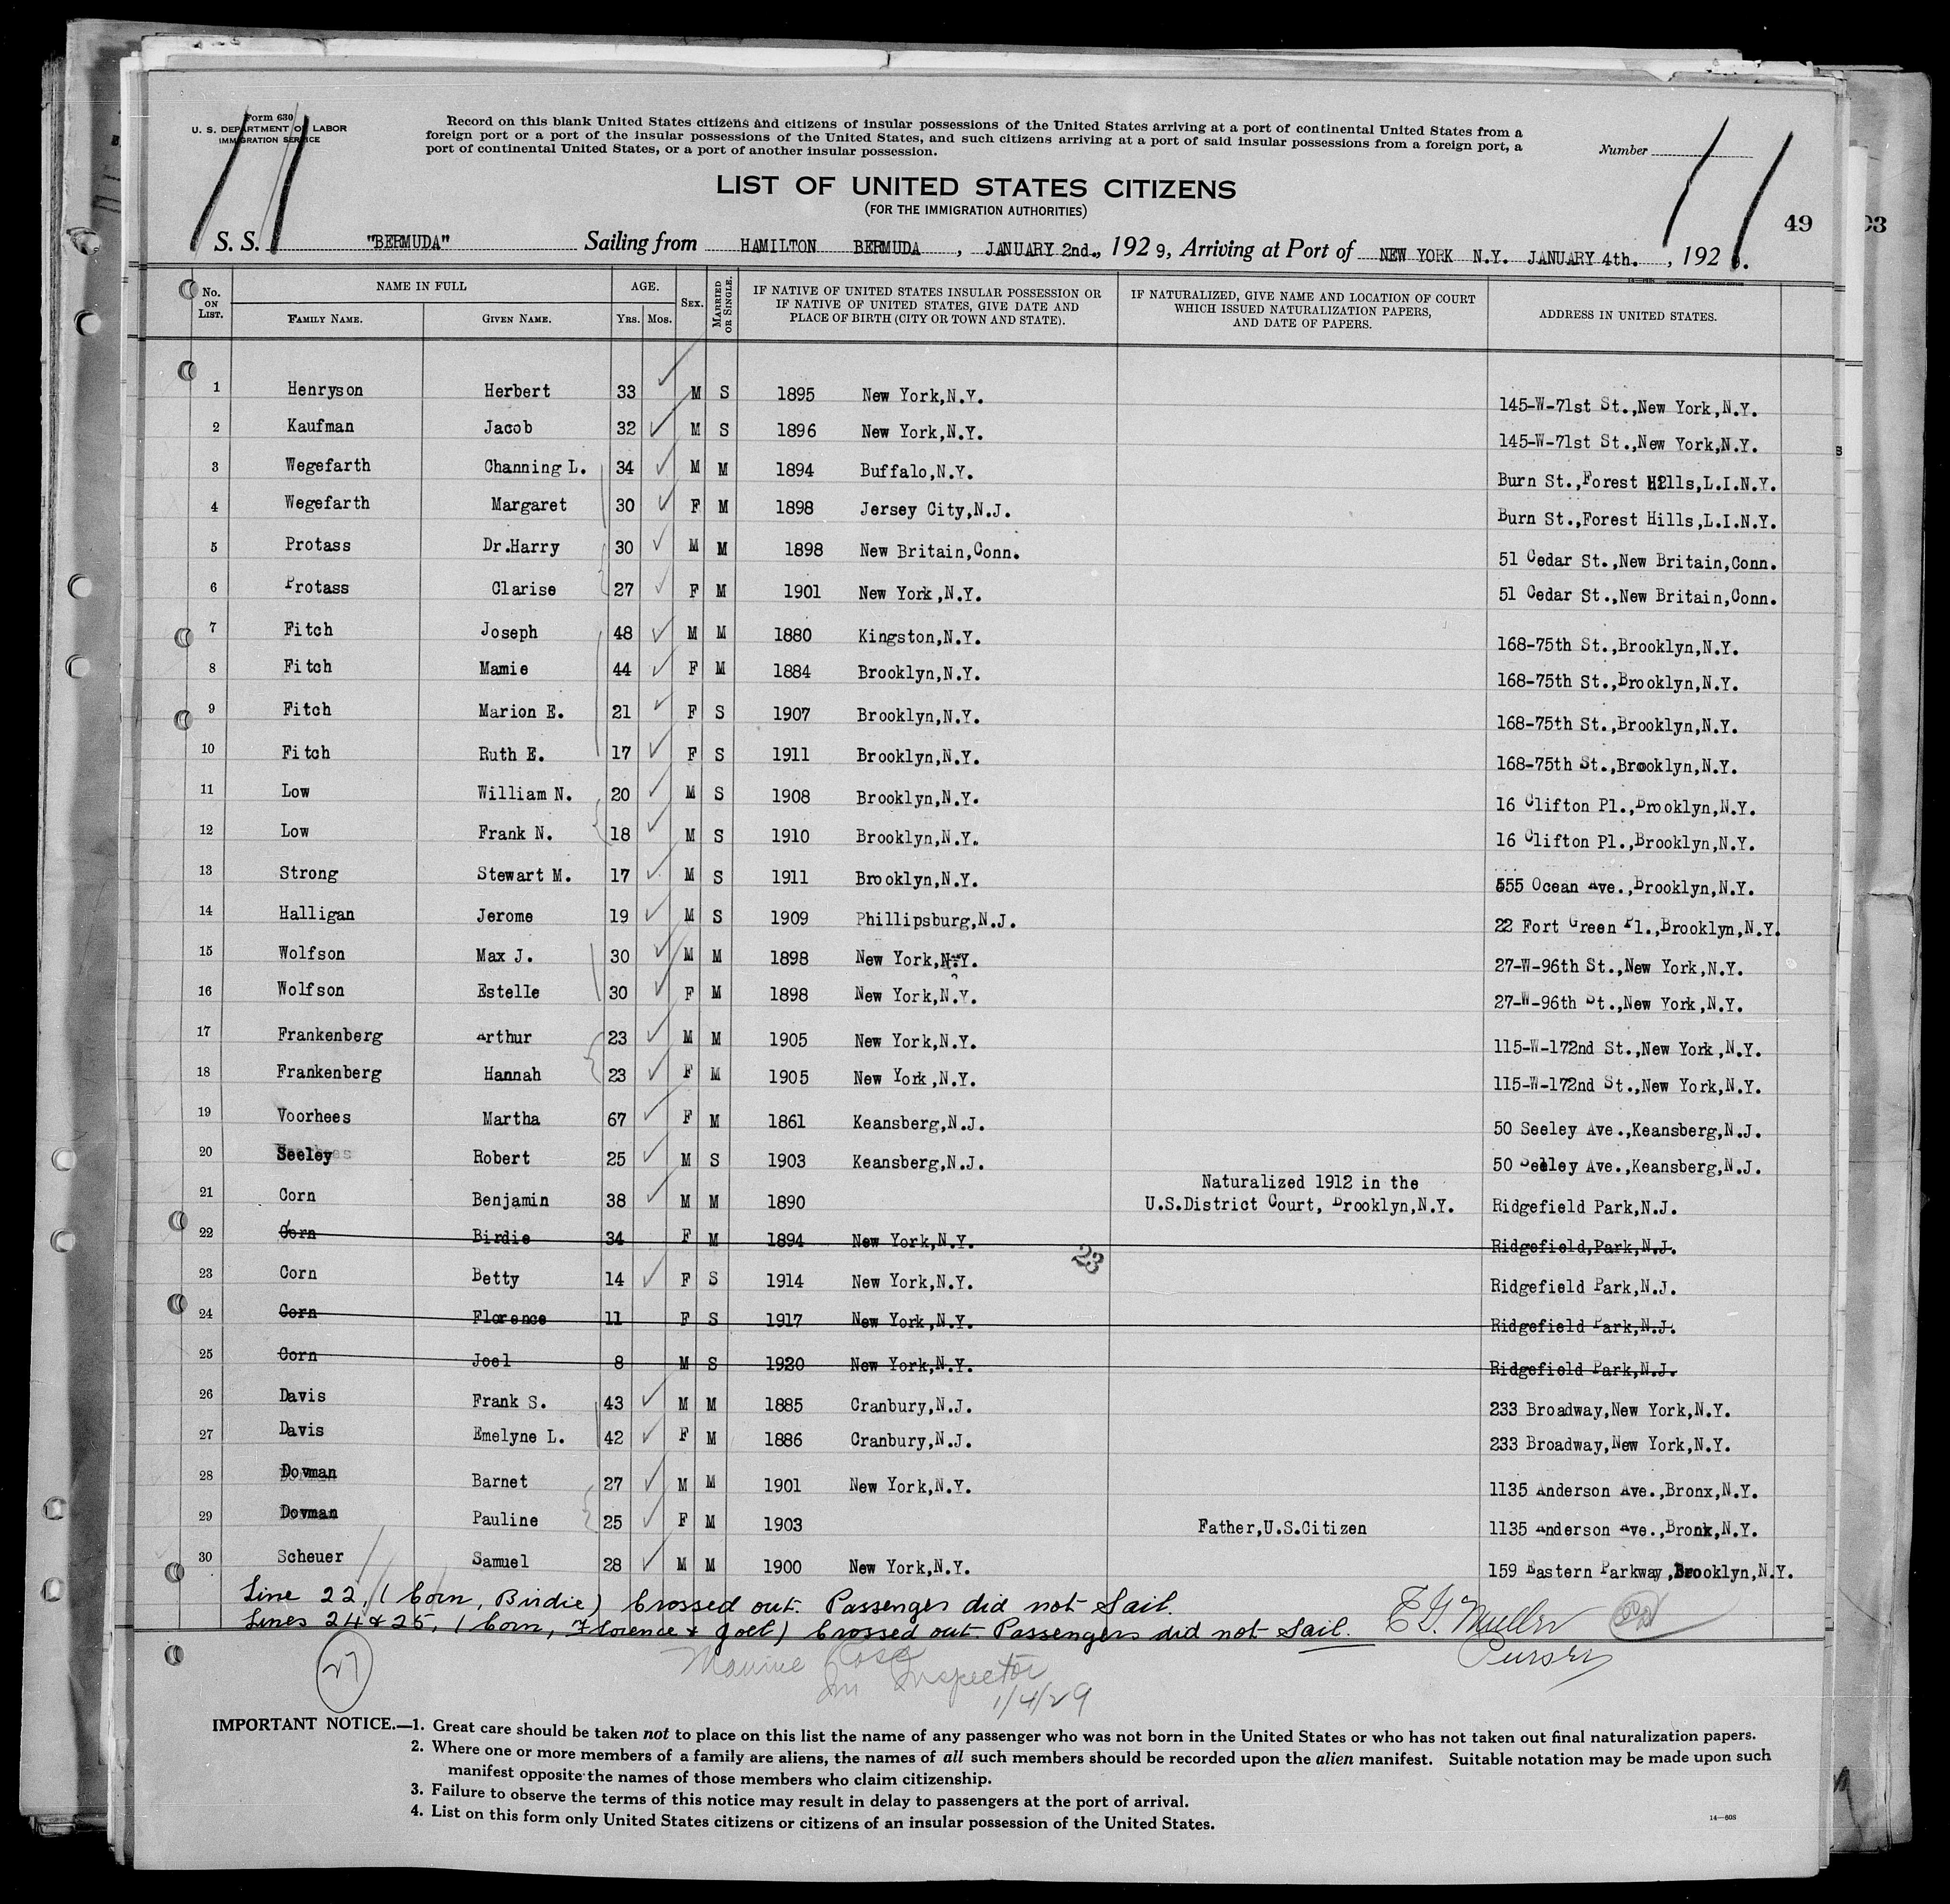 Form 630
U. S. DEPARTMENT OF LABOR
IMMIGRATION SERVICE
Record on this blank United States citizens and citizens of insular possessions of the United States arriving at a port of continental United States from a
foreign port or a port of the insular possessions of the United States, and such citizens arriving at a port of said insular possessions from a foreign port, a
port of continental United States, or a port of another insular possession.
Number
11 11
LIST OF UNITED STATES CITIZENS
(FOR THE IMMIGRATION AUTHORITIES)
49 03
S. S. "BERMUDA" Sailing from HAMILTON BERMUDA, JANUARY 2nd., 1929, Arriving at Port of NEW YORK N.Y. JANUARY 4th., 192
No. ON LIST. NAME IN FULL FAMILY NAME. GIVEN NAME. AGE. YRS. MOS. SEX. MARRIED OR SINGLE. IF NATIVE OF UNITED STATES INSULAR POSSESSION OR IF NATIVE OF UNITED STATES, GIVE DATE AND PLACE OF BIRTH (CITY OR TOWN AND STATE). IF NATURALIZED, GIVE NAME AND LOCATION OF COURT WHICH ISSUED NATURALIZATION PAPERS, AND DATE OF PAPERS. ADDRESS IN UNITED STATES.
1 Henryson Herbert 33 M S 1895 New York,N.Y. 145-W-71st St.,New York,N.Y.
2 Kaufman Jacob 32 M S 1896 New York,N.Y. 145-W-71st St.,New York,N.Y.
3 Wegefarth Channing L. 34 M M 1894 Buffalo,N.Y. Burn St.,Forest Hills,L.I.N.Y.
4 Wegefarth Margaret 30 F M 1898 Jersey City,N.J. Burn St.,Forest Hills,L.I.N.Y.
5 Protass Dr.Harry 30 M M 1898 New Britain,Conn. 51 Cedar St.,New Britain,Conn.
6 Protass Clarise 27 F M 1901 New York,N.Y. 51 Cedar St.,New Britain,Conn.
7 Fitch Joseph 48 M M 1880 Kingston,N.Y. 168-75th St.,Brooklyn,N.Y.
8 Fitch Mamie 44 F M 1884 Brooklyn,N.Y. 168-75th St.,Brooklyn,N.Y.
9 Fitch Marion E. 21 F S 1907 Brooklyn,N.Y. 168-75th St.,Brooklyn,N.Y.
10 Fitch Ruth E. 17 F S 1911 Brooklyn,N.Y. 168-75th St.,Brooklyn,N.Y.
11 Low William N. 20 M S 1908 Brooklyn,N.Y. 16 Clifton Pl.,Brooklyn,N.Y.
12 Low Frank N. 18 M S 1910 Brooklyn,N.Y. 16 Clifton Pl.,Brooklyn,N.Y.
13 Strong Stewart M. 17 M S 1911 Brooklyn,N.Y. 555 Ocean Ave.,Brooklyn,N.Y.
14 Halligan Jerome 19 M S 1909 Phillipsburg,N.J. 22 Fort Green Pl.,Brooklyn,N.Y.
15 Wolfson Max J. 30 M M 1898 New York,N.Y. 27-W-96th St.,New York,N.Y.
16 Wolfson Estelle 30 F M 1898 New York,N.Y. 27-W-96th St.,New York,N.Y.
17 Frankenberg Arthur 23 M M 1905 New York,N.Y. 115-W-172nd St.,New York,N.Y.
18 Frankenberg Hannah 23 F M 1905 New York,N.Y. 115-W-172nd St.,New York,N.Y.
19 Voorhees Martha 67 F M 1861 Keansberg,N.J. 50 Seeley Ave.,Keansberg,N.J.
20 Seeley Robert 25 M S 1903 Keansberg,N.J. 50 Seeley Ave.,Keansberg,N.J.
21 Corn Benjamin 38 M M 1890 Naturalized 1912 in the U.S.District Court, Brooklyn,N.Y. Ridgefield Park,N.J.
22 Corn Birdie 34 F M 1894 New York,N.Y. Ridgefield,Park,N.J.
23
23 Corn Betty 14 F S 1914 New York,N.Y. Ridgefield Park,N.J.
24 Corn Florence 11 F S 1917 New York,N.Y. Ridgefield Park,N.J.
25 Corn Joel 8 M S 1920 New York,N.Y. Ridgefield Park,N.J.
26 Davis Frank S. 43 M M 1885 Cranbury,N.J. 233 Broadway,New York,N.Y.
27 Davis Emelyne L. 42 F M 1886 Cranbury,N.J. 233 Broadway,New York,N.Y.
28 Dovman Barnet 27 M M 1901 New York,N.Y. 1135 Anderson Ave.,Bronx,N.Y.
29 Dovman Pauline 25 F M 1903 Father,U.S.Citizen 1135 Anderson Ave.,Bronx,N.Y.
30 Scheuer Samuel 28 M M 1900 New York,N.Y. 159 Eastern Parkway,Brooklyn,N.Y.
Line 22, (Corn, Birdie) Crossed out. Passenger did not Sail.
Lines 24 & 25, (Corn, Florence & Joel) Crossed out. Passengers did not Sail. E G. Muller
Purser
27
Maurice Rose
Im Inspector
1/4/29
IMPORTANT NOTICE.—1. Great care should be taken not to place on this list the name of any passenger who was not born in the United States or who has not taken out final naturalization papers.
2. Where one or more members of a family are aliens, the names of all such members should be recorded upon the alien manifest. Suitable notation may be made upon such
manifest opposite the names of those members who claim citizenship.
3. Failure to observe the terms of this notice may result in delay to passengers at the port of arrival.
4. List on this form only United States citizens or citizens of an insular possession of the United States.
14—608